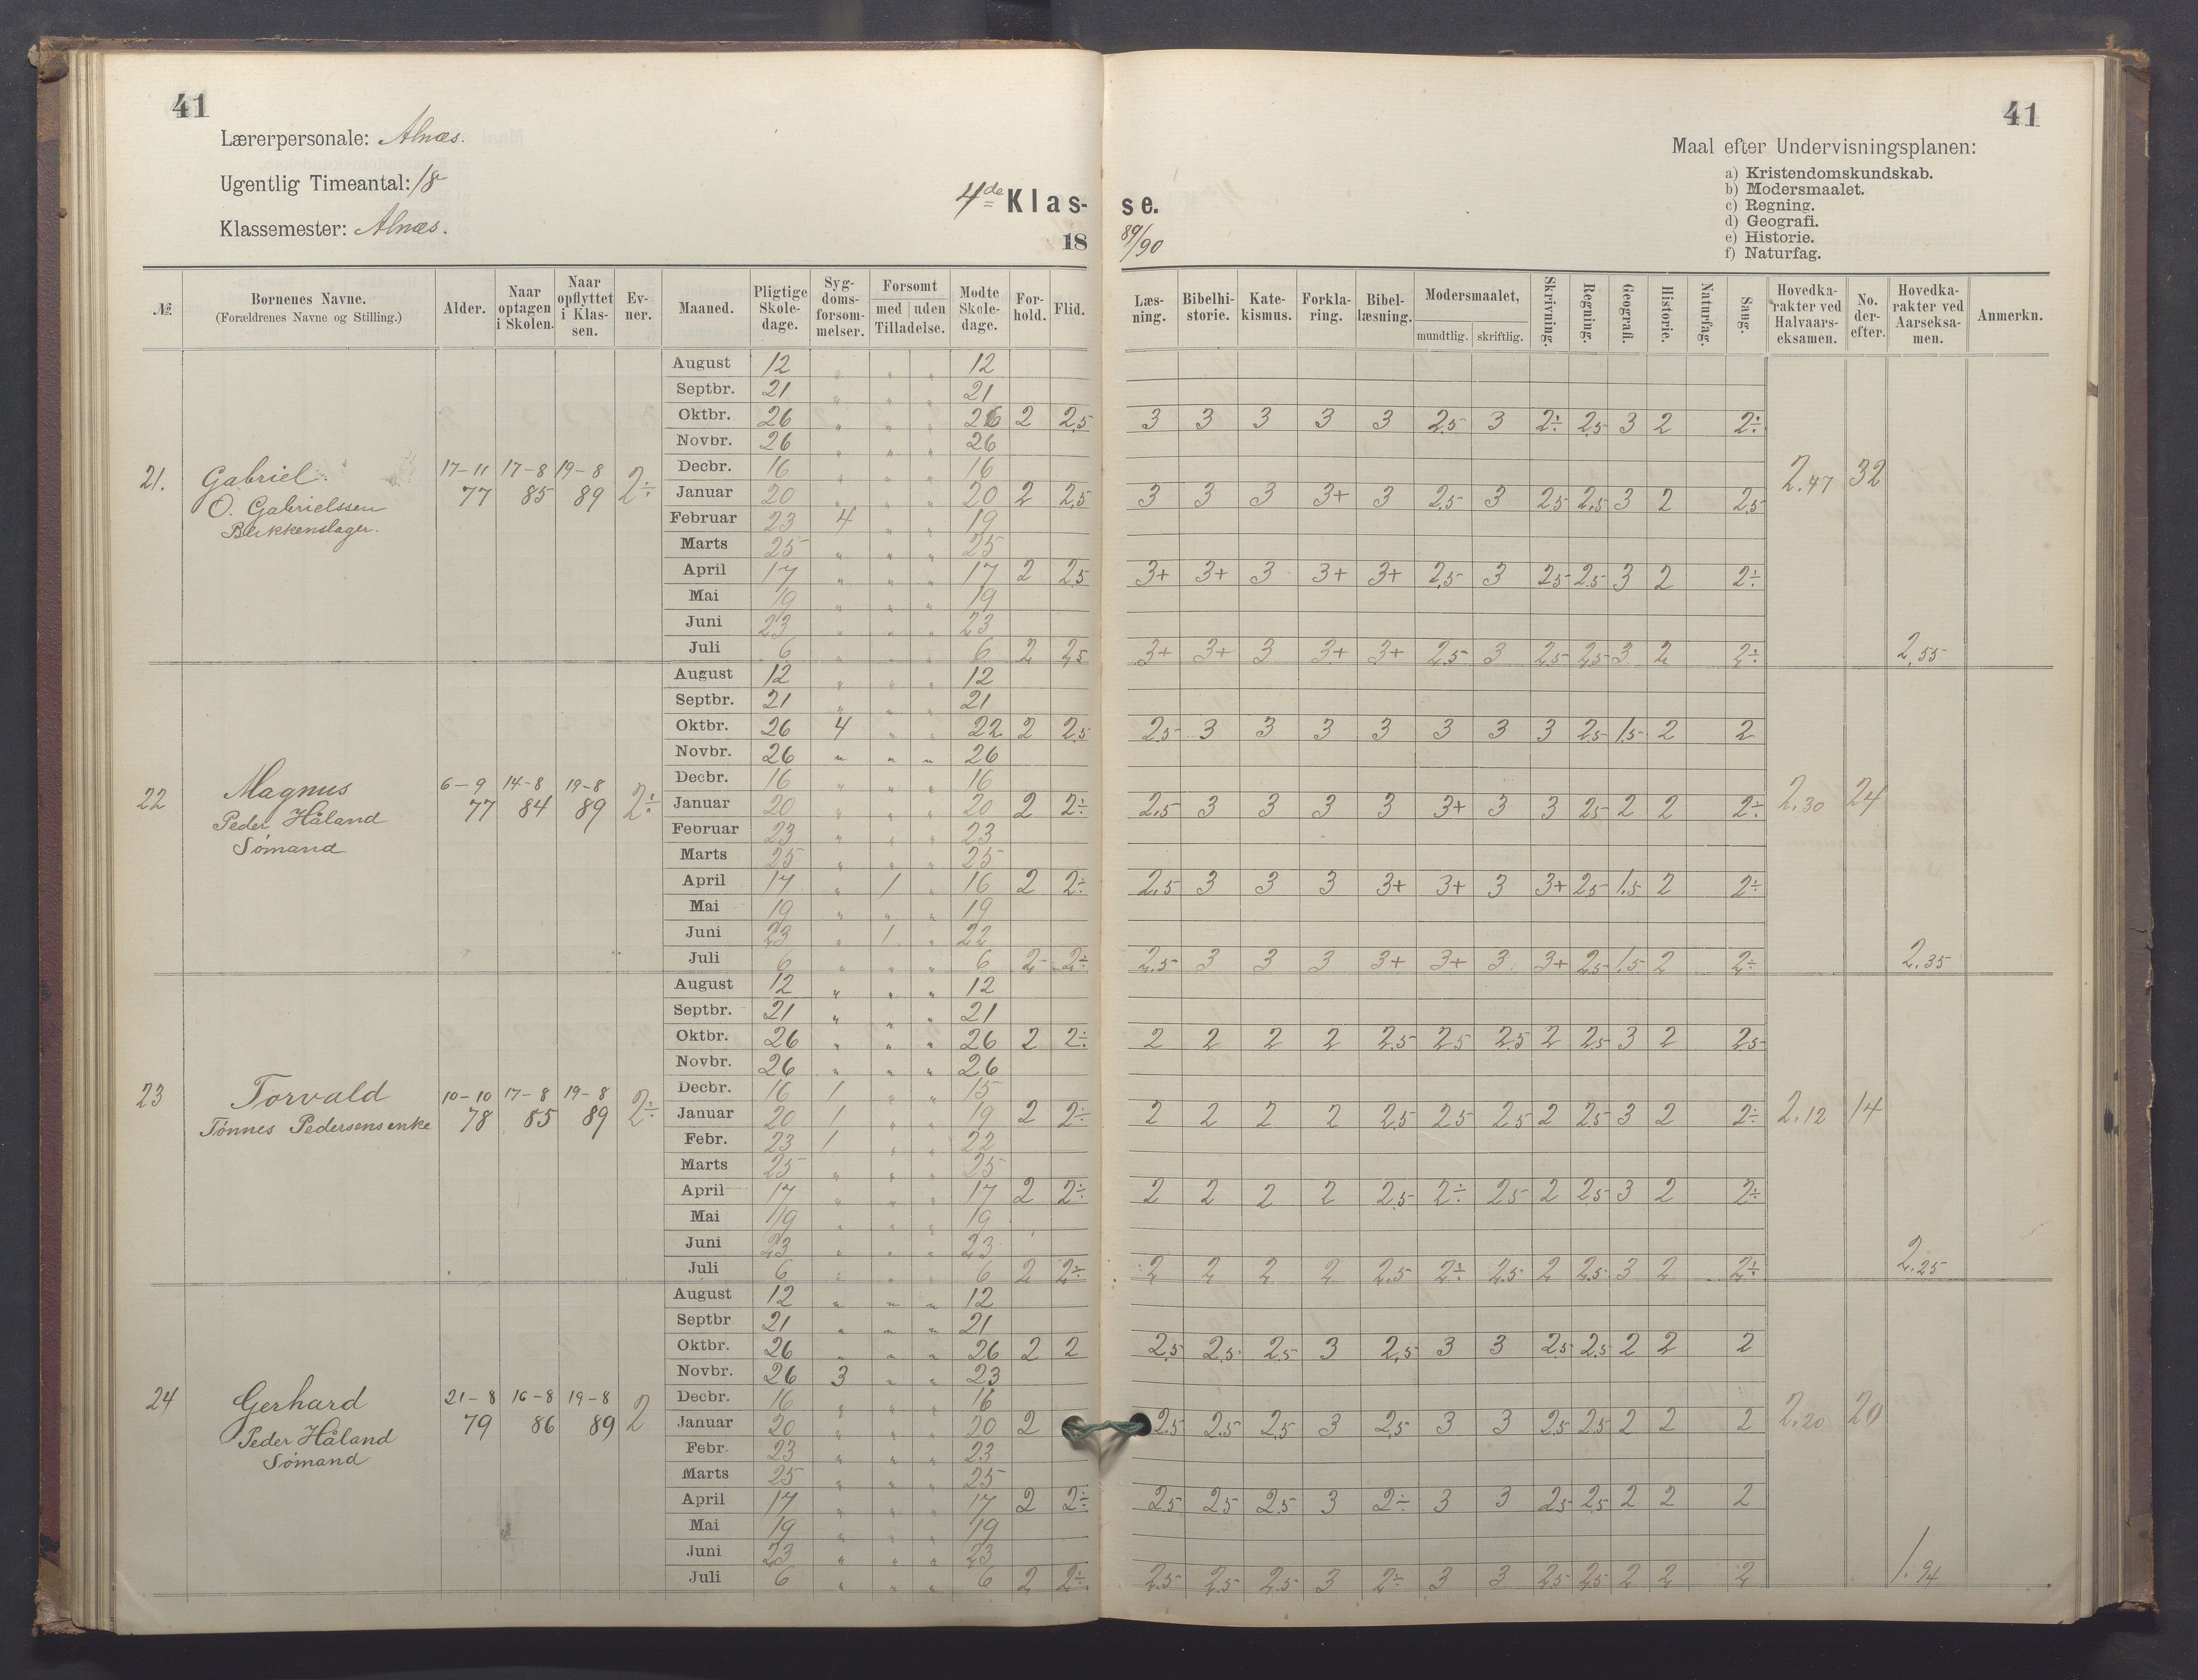 41
Lærerpersonale: Alnæs.
Ugentlig Timeantal: 18
Klassemester: Alnæs.
4de Klas-
18
№
Børnenes Navne.
(Forældrenes Navne og Stilling.)
Alder.
Naar optagen i Skolen.
Naar opflyttet i Klassen.
Evner.
Maaned.
Pligtige Skoledage.
Sygdomsforsømmelser.
Forsømt med uden Tilladelse.
Mødte Skoledage.
Forhold.
Flid.
21. Gabriel
O. Gabrielssen
Blikkenslager.
17-11 77 17-8 85 19-8 89 2÷
August 12 " " " 12
Septbr. 21 " " " 21
Oktbr. 26 " " " 26 2 2,5
Novbr. 26 " " " 26
Decbr. 16 " " " 16
Januar 20 " " " 20 2 2,5
Februar 23 4 " " 19
Marts 25 " " " 25
April 17 " " " 17 2 2,5
Mai 19 " " " 19
Juni 23 " " " 23
Juli 6 " " " 6 2 2,5
22 Magnus
Peder Håland
Sømand
6-9 77 14-8 84 19-8 89 2÷
August 12 " " " 12
Septbr. 21 " " " 21
Oktbr. 26 4 " " 22 2 2,5
Novbr. 26 " " " 26
Decbr. 16 " " " 16
Januar 20 " " " 20 2 2÷
Februar 23 " " " 23
Marts 25 " " " 25
April 17 " 1 " 16 2 2÷
Mai 19 " " " 19
Juni 23 " 1 " 22
Juli 6 " " " 6 2 2÷
23 Torvald
Tønnes Pedersens enke
10-10 78 17-8 85 19-8 89 2÷
August 12 " " " 12
Septbr. 21 " " " 21
Oktbr. 26 " " " 26 2 2÷
Novbr. 26 " " " 26
Decbr. 16 1 " " 15
Januar 20 1 " " 19 2 2÷
Febr. 23 1 " " 22
Marts 25 " " " 25
April 17 " " " 17 2 2÷
Mai 19 " " " 19
Juni 23 " " " 23
Juli 6 " " " 6 2 2÷
24 Gerhard
Peder Håland
Sømand
21-8 79 16-8 86 19-8 89 2
August 12 " " " 12
Septbr 21 " " " 21
Oktbr. 26 " " " 26 2 2
Novbr. 26 3 " " 23
Decbr. 16 " " " 16
Januar 20 " " " 20 2
Febr. 23 " " " 23
Marts 25 " " " 25
April 17 " " " 17 2 2÷
Mai 19 " " " 19
Juni 23 " " " 23
Juli 6 " " " 6 2 2÷
41
Maal efter Undervisningsplanen:
a) Kristendomskundskab.
b) Modersmaalet.
c) Regning.
d) Geografi.
e) Historie.
f) Naturfag.
se.
89/90
Læsning.
Bibelhistorie.
Katekismus.
Forklaring.
Bibellæsning.
Modersmaalet,
mundtlig. skriftlig.
Skrivning.
Regning.
Geografi.
Historie.
Naturfag.
Sang.
Hovedkarakter ved Halvaarseksamen.
No. derefter.
Hovedkarakter ved Aarseksamen.
Anmerkn.
3 3 3 3 3 2,5 3 2÷ 2,5 3 2 2÷
3 3 3 3+ 3 2,5 3 2,5 2,5 3 2 2,5 2.47 32
3+ 3+ 3 3+ 3+ 2,5 3 2,5 2,5 3 2 2÷
3+ 3+ 3 3+ 3+ 2,5 3 2,5 2,5 3 2 2÷ 2,55
2,5 3 3 3 3 3 3 3 2,5 1,5 2 2
2,5 3 3 3 3 3+ 3 3 2,5 2 2 2÷ 2.30 24
2,5 3 3 3 3+ 3+ 3 3+ 2,5 1,5 2 2÷
2,5 3 3 3 3+ 3+ 3 3+ 2,5 1,5 2 2÷ 2,35
2 2 2 2 2,5 2,5 2,5 2 2,5 3 2 2,5
2 2 2 2 2,5 2,5 2,5 2 2,5 3 2 2÷ 2.12 14
2 2 2 2 2,5 2÷ 2,5 2 2,5 3 2 2÷
2 2 2 2 2,5 2÷ 2,5 2 2,5 3 2 2÷ 2.25
2,5 2,5 2,5 3 2,5 3 3 2,5 2,5 2 2 2
2,5 2,5 2,5 3 2,5 3 3 2,5 2,5 2 2 2 2.20 20
2,5 2,5 2,5 3 2÷ 3 3 2,5 2,5 2 2 2
2,5 2,5 2,5 3 2÷ 3 3 2,5 2,5 2 2 2 1.94